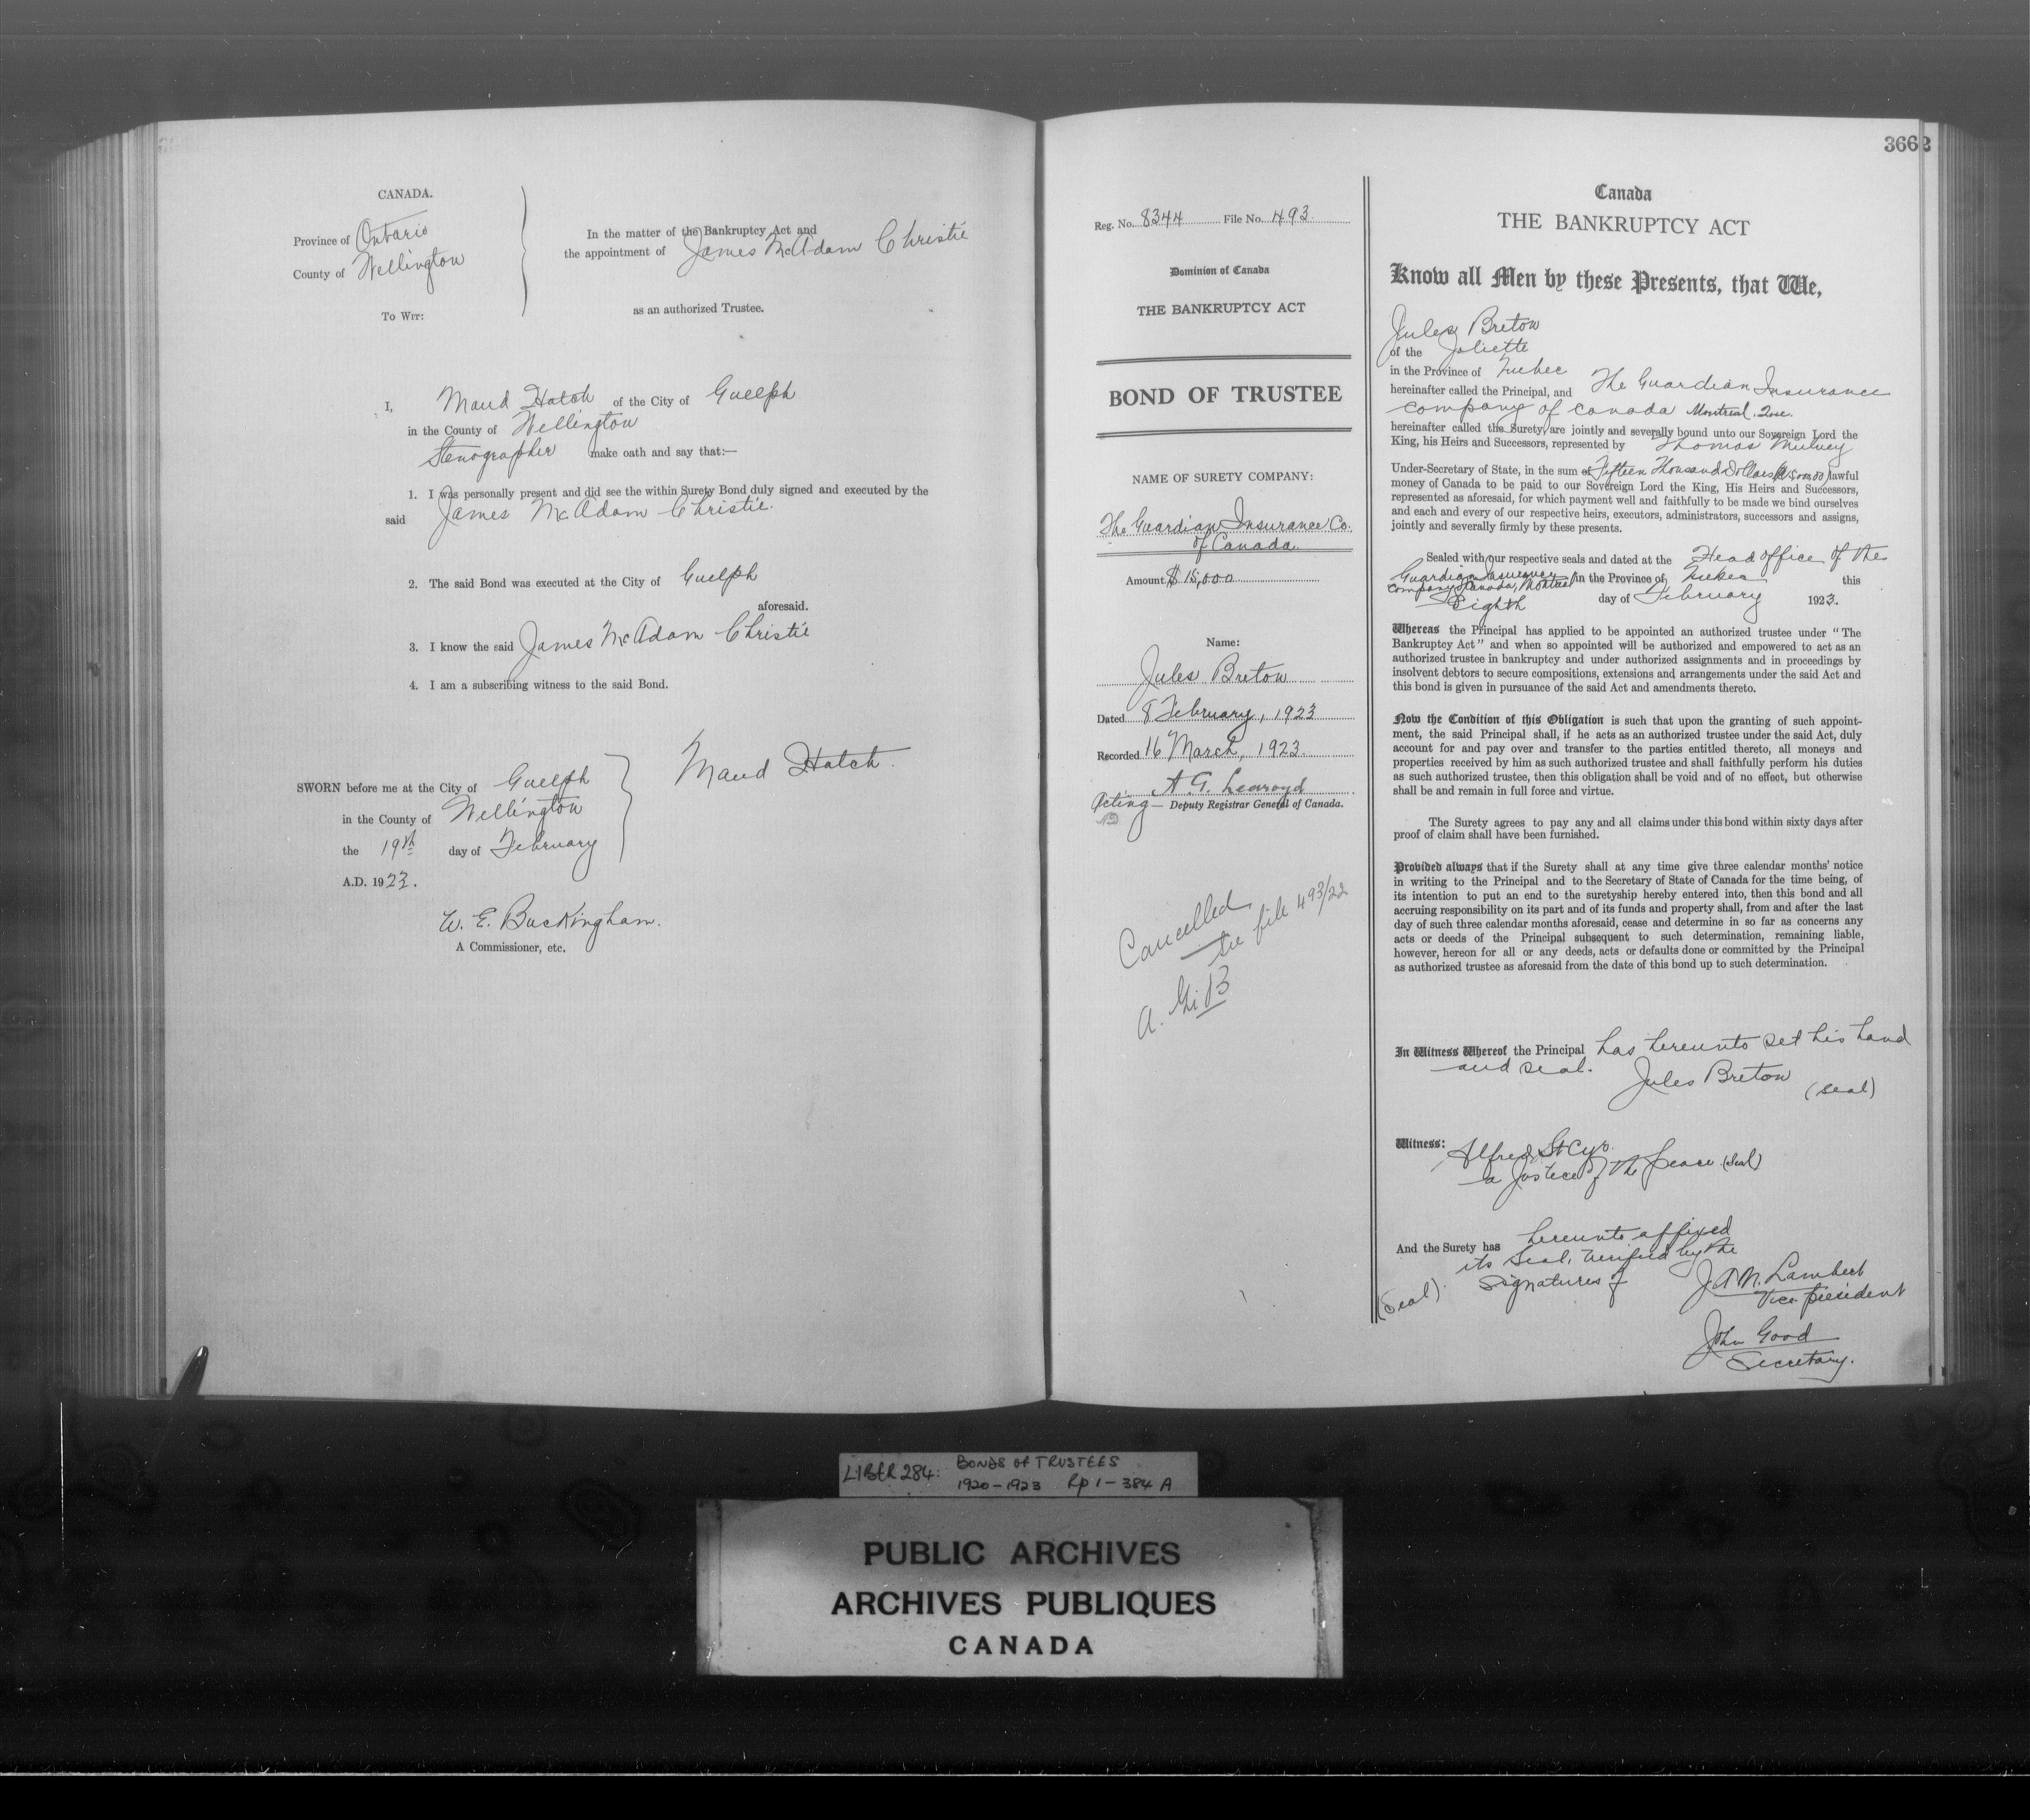 CANADA.
Province of Ontario
County of Wellington
To Wit:
In the matter of the Bankruptcy Act and
the appointment of James McAdam Christie
as an authorized Trustee.
I, Maud Hatch of the City of Guelph
in the County of Wellington
Stenographer make oath and say that:—
1. I was personally present and did see the within Surety Bond duly signed and executed by the
said James McAdam Christie.
2. The said Bond was executed at the City of Guelph
aforesaid.
3. I know the said James McAdam Christie
4. I am a subscribing witness to the said Bond.
SWORN before me at the City of Guelph
in the County of Wellington
the 19th day of February
A.D. 1923.
Maud Hatch.
W. E. Buckingham.
A Commissioner, etc.
Reg. No. 8344 File No. 493
Dominion of Canada
THE BANKRUPTCY ACT
BOND OF TRUSTEE
NAME OF SURETY COMPANY:
The Guardian Insurance Co.
of Canada.
Amount, $ 15,000
Name:
Jules Breton
Dated 8 February, 1923
Recorded 16 March, 1923.
A. G. Learoyd
Acting — Deputy Registrar General of Canada.
Cancelled
see file 493/22
3662
Canada
THE BANKRUPTCY ACT
Know all Men by these Presents, that We,
Jules Breton
of the Joliette
in the Province of Quebec
hereinafter called the Principal, and The Guardian Insurance
Company of Canada Montreal, Que.
hereinafter called the Surety, are jointly and severally bound unto our Sovereign Lord the
King, his Heirs and Successors, represented by Thomas Mulvey
Under-Secretary of State, in the sum of Fifteen Thousand Dollars ($15,000.00) lawful
money of Canada to be paid to our Sovereign Lord the King, His Heirs and Successors,
represented as aforesaid, for which payment well and faithfully to be made we bind ourselves
and each and every of our respective heirs, executors, administrators, successors and assigns,
jointly and severally firmly by these presents.
Sealed with our respective seals and dated at the Head office of the
Guardian Insurance
Company of Canada, Montreal in the Province of Quebec this
Eighth day of February 1923.
Whereas the Principal has applied to be appointed an authorized trustee under "The
Bankruptcy Act" and when so appointed will be authorized and empowered to act as an
authorized trustee in bankruptcy and under authorized assignments and in proceedings by
insolvent debtors to secure compositions, extensions and arrangements under the said Act and
this bond is given in pursuance of the said Act and amendments thereto.
Now the Condition of this Obligation is such that upon the granting of such appoint-
ment, the said Principal shall, if he acts as an authorized trustee under the said Act, duly
account for and pay over and transfer to the parties entitled thereto, all moneys and
properties received by him as such authorized trustee and shall faithfully perform his duties
as such authorized trustee, then this obligation shall be void and of no effect, but otherwise
shall be and remain in full force and virtue.
The Surety agrees to pay any and all claims under this bond within sixty days after
proof of claim shall have been furnished.
Provided always that if the Surety shall at any time give three calendar months' notice
in writing to the Principal and to the Secretary of State of Canada for the time being, of
its intention to put an end to the suretyship hereby entered into, then this bond and all
accruing responsibility on its part and of its funds and property shall, from and after the last
day of such three calendar months aforesaid, cease and determine in so far as concerns any
acts or deeds of the Principal subsequent to such determination, remaining liable,
however, hereon for all or any deeds, acts or defaults done or committed by the Principal
as authorized trustee as aforesaid from the date of this bond up to such determination.
In Witness Whereof the Principal has hereunto set his hand
and seal.
Jules Breton (seal)
Witness: Alfred St Cyr.
a Justice of the Peace (Seal)
And the Surety has hereunto affixed
its Seal, verified by the
signatures of
(Seal)
J A N. Lambert
Vice-president
John Good
Secretary.
LIBER 284: BONDS OF TRUSTEES
1920-1923 Pp 1-384 A
PUBLIC ARCHIVES
ARCHIVES PUBLIQUES
CANADA